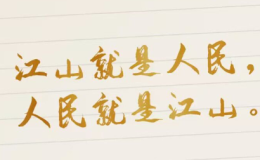 江山就是人民，
人民就是江山。